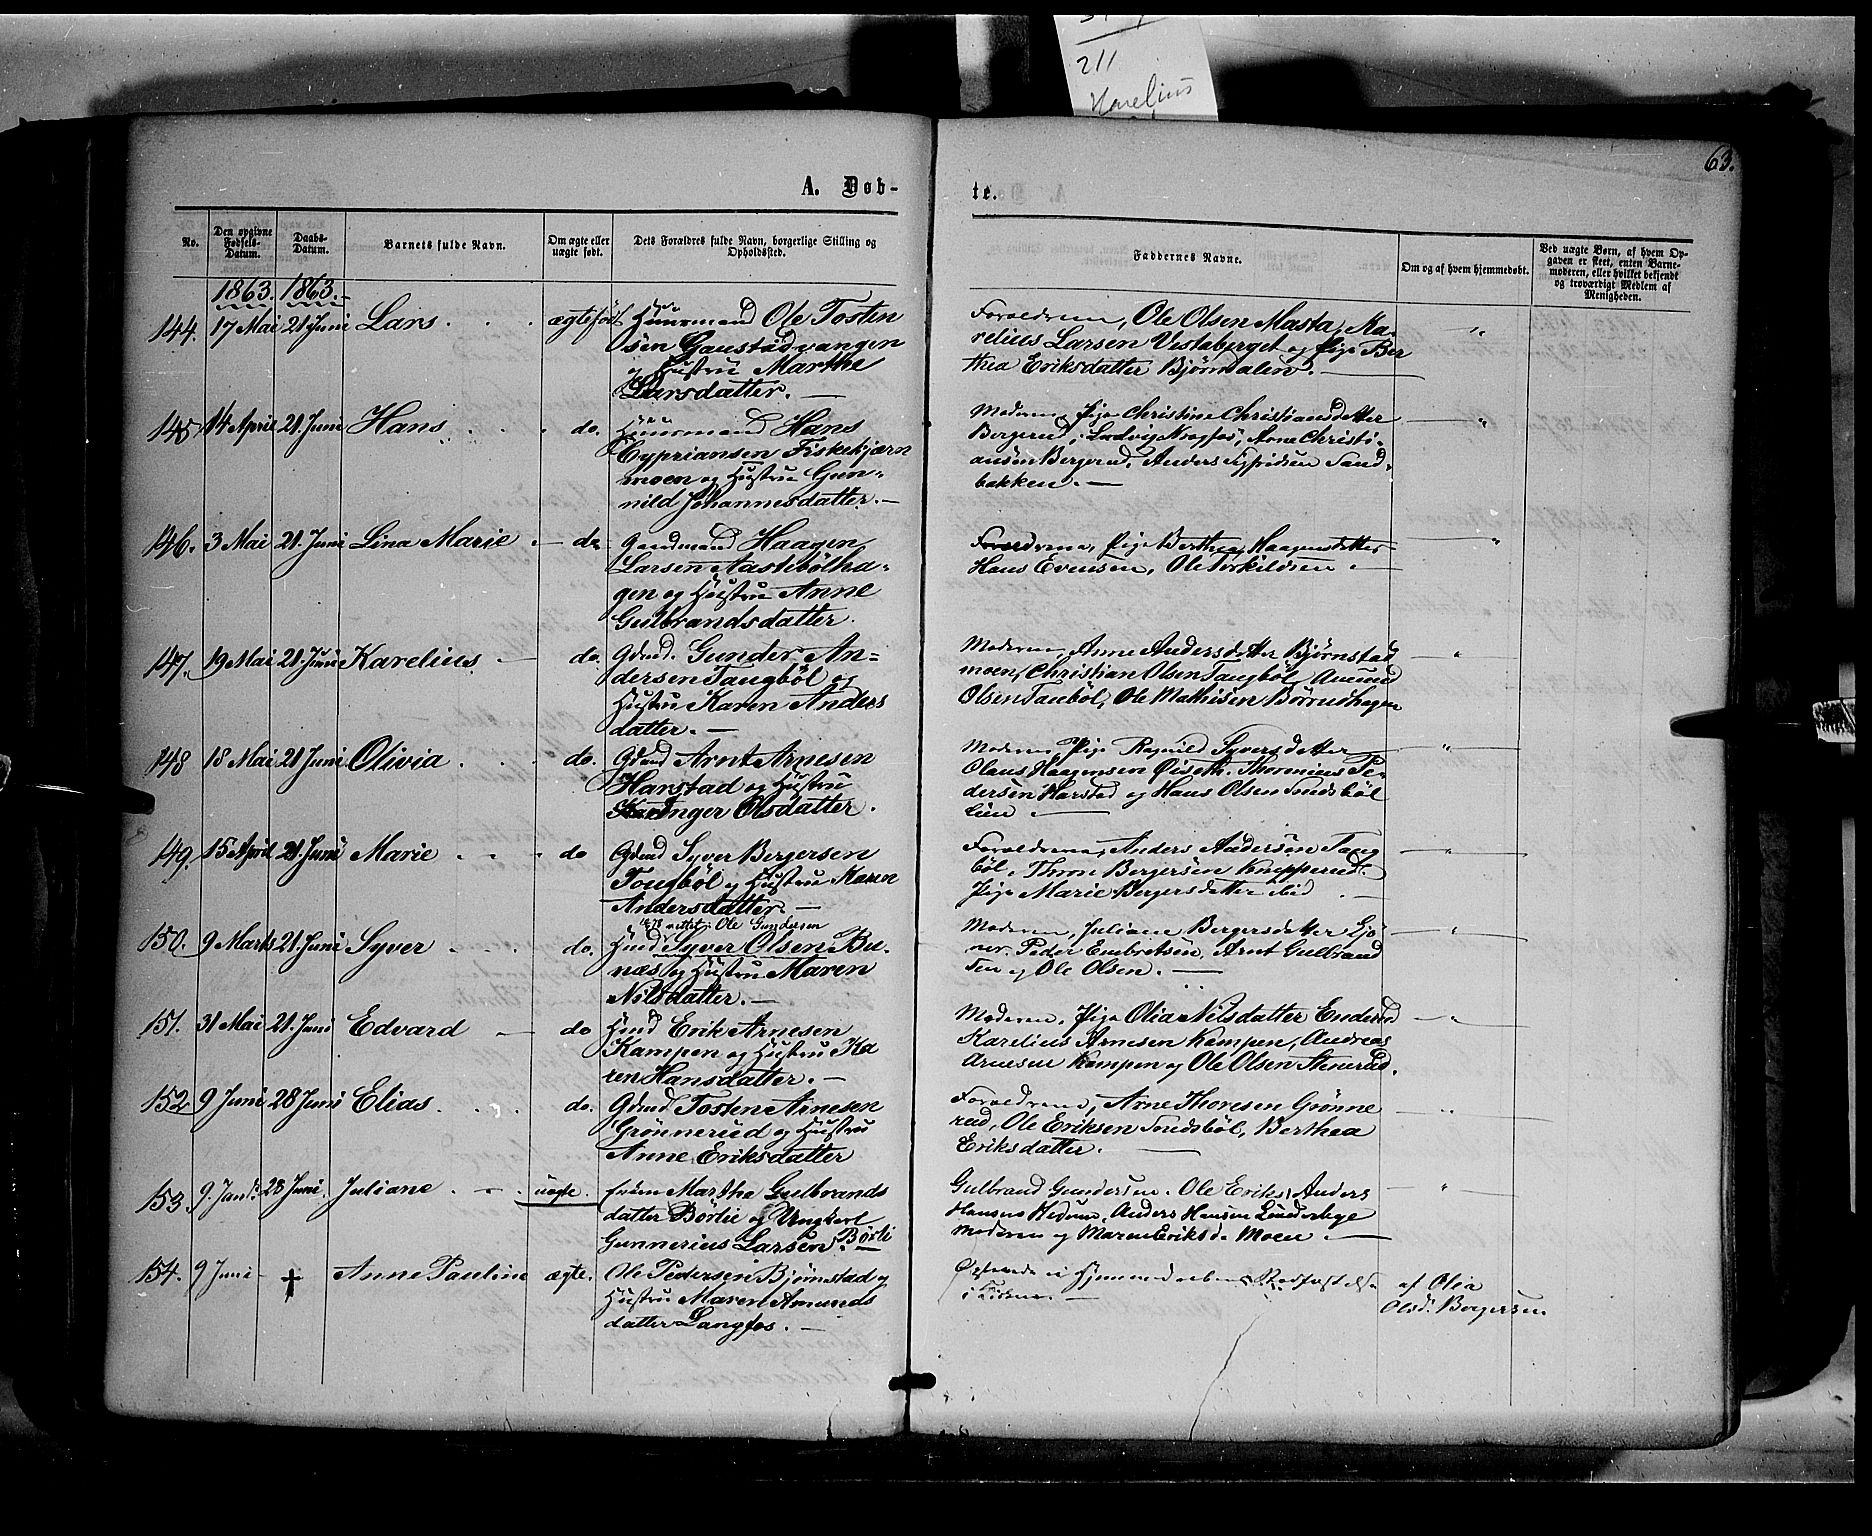 211
Karelius
63.
A. Døb-
te.
No.
Den opgivne Fødsels-Datum.
Daabs-Datum.
Barnets fulde Navn.
Om ægte eller uægte født.
Dets Forældres fulde Navn, borgerlige Stilling og Opholdssted.
Faddernes Navne.
Om og af hvem hjemmedøbt.
Ved uægte Børn, af hvem Op-
gaven er skeet, enten Barne-
moderen, eller hvilket bekjendt
og troværdigt Medlem af
Menigheden.
1863. 1863.
144. 17 Mai 21 Juni Lars ægtefødt Huusmand Ole Tosten
sen Gaustadvangen
og Hustru Marthe
Larsdatter.
Forældrene, Ole Olsen Masta, Ma-
relius Larsen Vestaberget og Pige Ber
thea Eriksdatter Bjørndalen. "
145. 14 April 21. Juni Hans do. Huusmand Hans
Cypriansen Fiskekjærn
moen og Hustru Gun-
nild Johannesdatter.
Moderen, Pige Christine Christiansdatter
Bergerud, Ludvig Kragfos, Arne Christi-
ansen Bergerud, Anders Sigfridsen Sand-
bakken. "
146. 3 Mai 21. Juni Lina Marie do Gaardmand Haagen
Larsen Aastebølha-
gen og Hustru Anne
Gulbrandsdatter.
Forældrene, Pige Berthea Haagensdatter
Hans Evensen, Ole Torkildsen. "
147. 19 Mai 21. Juni Karelius do. Gdmd. Gunder An-
dersen Taugbøl og
Hustru Karen Anders
datter.
Moderen, Anne Andersdatter Bjørnstad
moen, Christian Olsen Taugbøl, Amund
Olsen Taubøl, Ole Mathisen Børrushagen "
148 18 Mai 21 Juni Olivia do. Gdmd Arnt Arnesen
Harstad og Hustru
Inger Olsdatter.
Moderen, Pige Ragnild Syversdatter
Olaus Haagensen Øiseth, Thorinius Pe-
dersen Harstad og Hans Olsen Sundsbøl
lien "
149. 15 April 21. Juni Marie do Gdmd Syver Bergersen
Tougbøl og Hustru Karen
Andersdatter.
Forældrene, Anders Andersen Taug
bøl, Thron Bergersen Knapperud.
Pige Marie Bergersdatter ibid. "
1878 rettet: Ole Gundersen
150. 9 Marts 21. Juni Syver do. Hmd Syver Olsen Bu-
næs og Hustru Maren
Nilsdatter.
Moderen, Juliane Bergersdatter Gjø
ner. Peder Embretsen, Arnt Gulbrand
sen og Ole Olsen. "
151. 31 Mai 21. Juni Edvard do Hmd Erik Arnesen
Kampen og Hustru Ka
ren Hansdatter.
Moderen, Pige Olia Nilsdatter Enderud
Karelius Arnesen Kampen, Andreas
Arnesen Kampen og Ole Olsen Stenerud. "
152 9 Juni 28 Juni Elias do. Gdmd Tosten Arnesen
Grønnerud og Hustru
Anne Eriksdatter
Forældrene, Arne Thoresen Grønne
rud, Ole Eriksen Sundsbøl, Berthea
Eriksdatter. "
153. 9. 28 Juni. Juliane uægte. Martha Gulbrands
datter Børlie og Ungkarl
Gunnerius Larsen Børli
Gulbrand Gundersen. Ole Eriks, Anders
Hansens Hedum, Anders Hansen
Moderen og Maren Eriksd. Moen. "
154. 9 Juni † Anne Pauline ægte. Ole Pedersen Bjørnstad og
Hustru Maren Amunds
datter Langfos.
Hjemmedaabens Stadfæstelse
i Kirken.
af Olia
Olsd. Bergersen